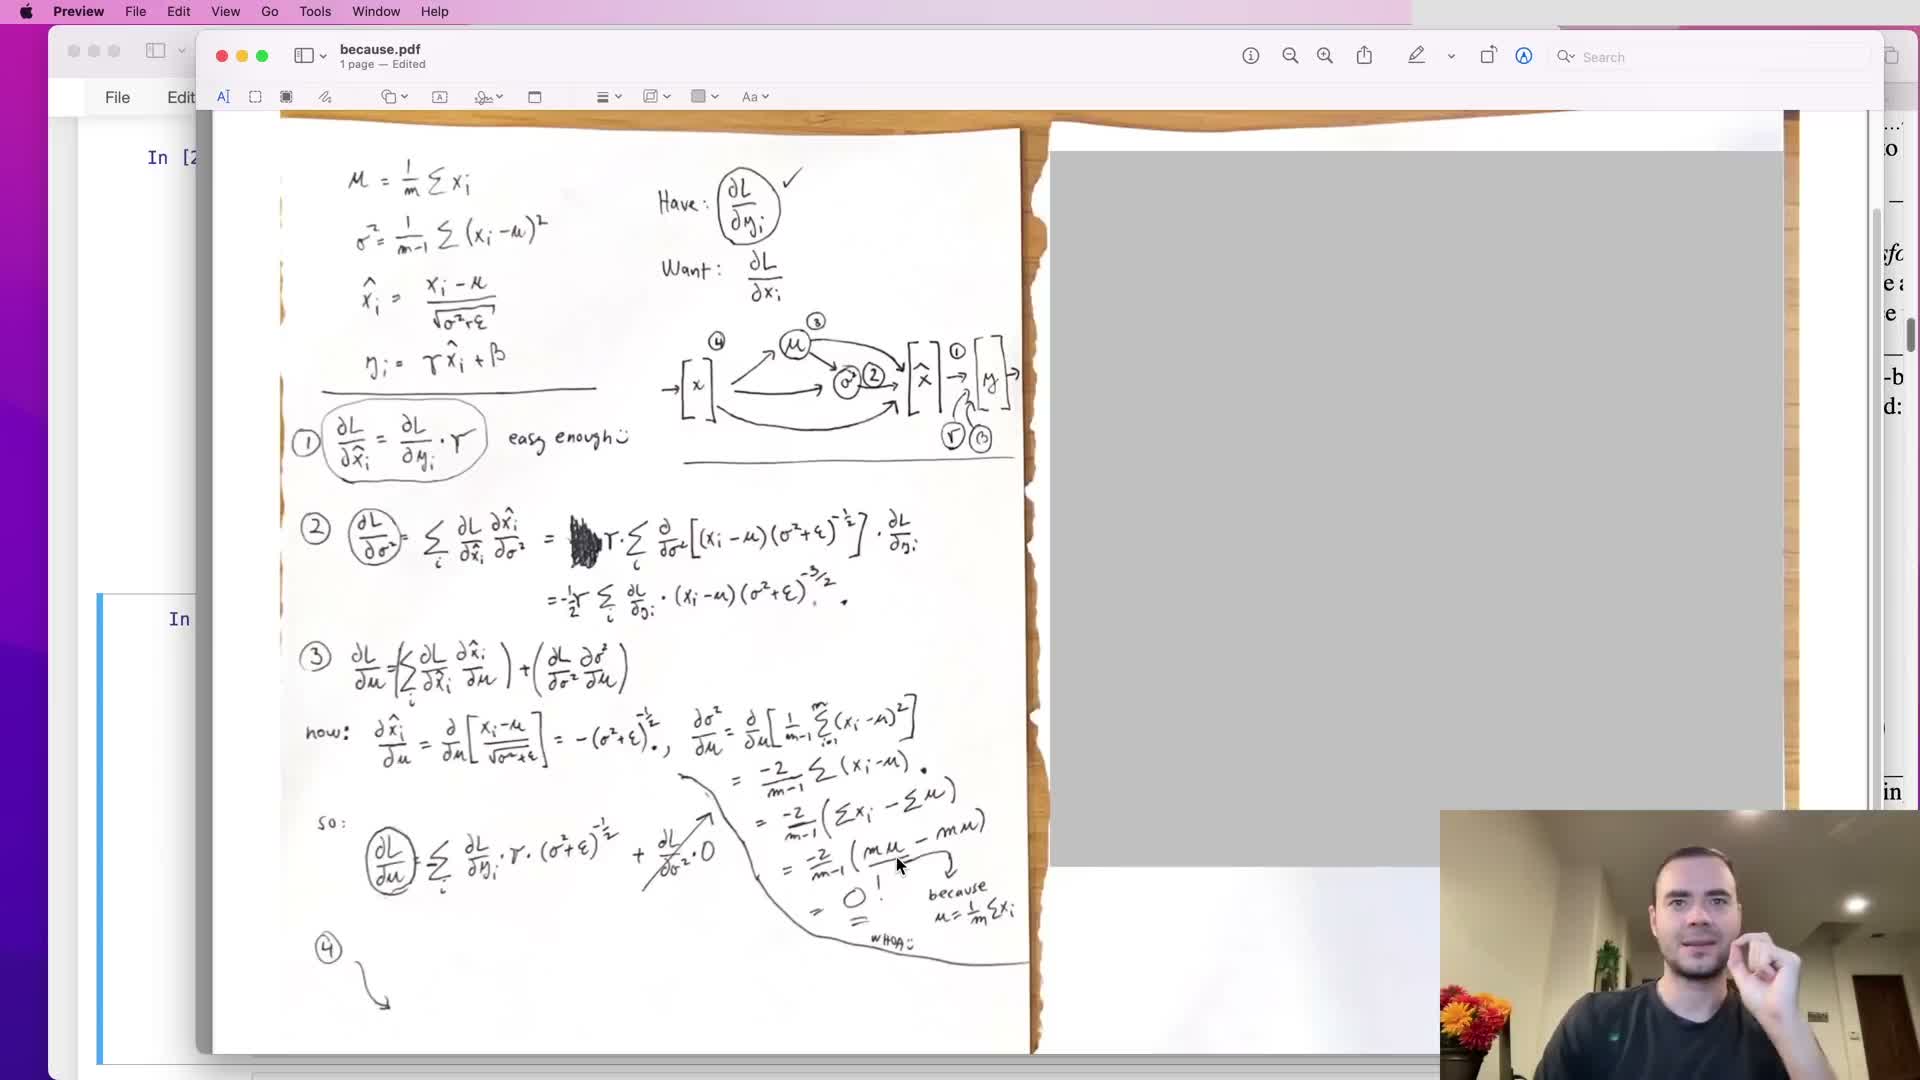 Preview File Edit View Go Tools Window Help
because.pdf
1 page — Edited
Search
File Edit
Aa
In [2
In
μ = 1/m Σ xᵢ
σ² = 1/(m-1) Σ (xᵢ - μ)²
x̂ᵢ = (xᵢ - μ)/√(σ²+ε)
yᵢ = γx̂ᵢ + β
Have: ∂L/∂yᵢ ✓
Want: ∂L/∂xᵢ
→ [x] ④ μ ③ σ² ② [x̂] ① → [y] →
γ β
① ∂L/∂x̂ᵢ = ∂L/∂yᵢ · γ easy enough :)
② ∂L/∂σ² = Σᵢ ∂L/∂x̂ᵢ ∂x̂ᵢ/∂σ² = γ · Σᵢ ∂/∂σ² [(xᵢ - μ)(σ²+ε)^(-1/2)] · ∂L/∂yᵢ
= -1/2 γ Σᵢ ∂L/∂yᵢ · (xᵢ - μ)(σ²+ε)^(-3/2) .
③ ∂L/∂μ = (Σᵢ ∂L/∂x̂ᵢ ∂x̂ᵢ/∂μ) + (∂L/∂σ² ∂σ²/∂μ)
now: ∂x̂ᵢ/∂μ = ∂/∂μ [(xᵢ - μ)/√(σ²+ε)] = -(σ²+ε)^(-1/2) . , ∂σ²/∂μ = ∂/∂μ [1/(m-1) Σᵢ₌₁ᵐ (xᵢ - μ)²]
= -2/(m-1) Σ (xᵢ - μ) .
= -2/(m-1) (Σxᵢ - Σμ)
= -2/(m-1) (mμ - mμ)
= 0 !
WHOA :)
because
μ = 1/m Σxᵢ
so: ∂L/∂μ = -Σᵢ ∂L/∂yᵢ · γ · (σ²+ε)^(-1/2) + ∂L/∂σ² · 0
④